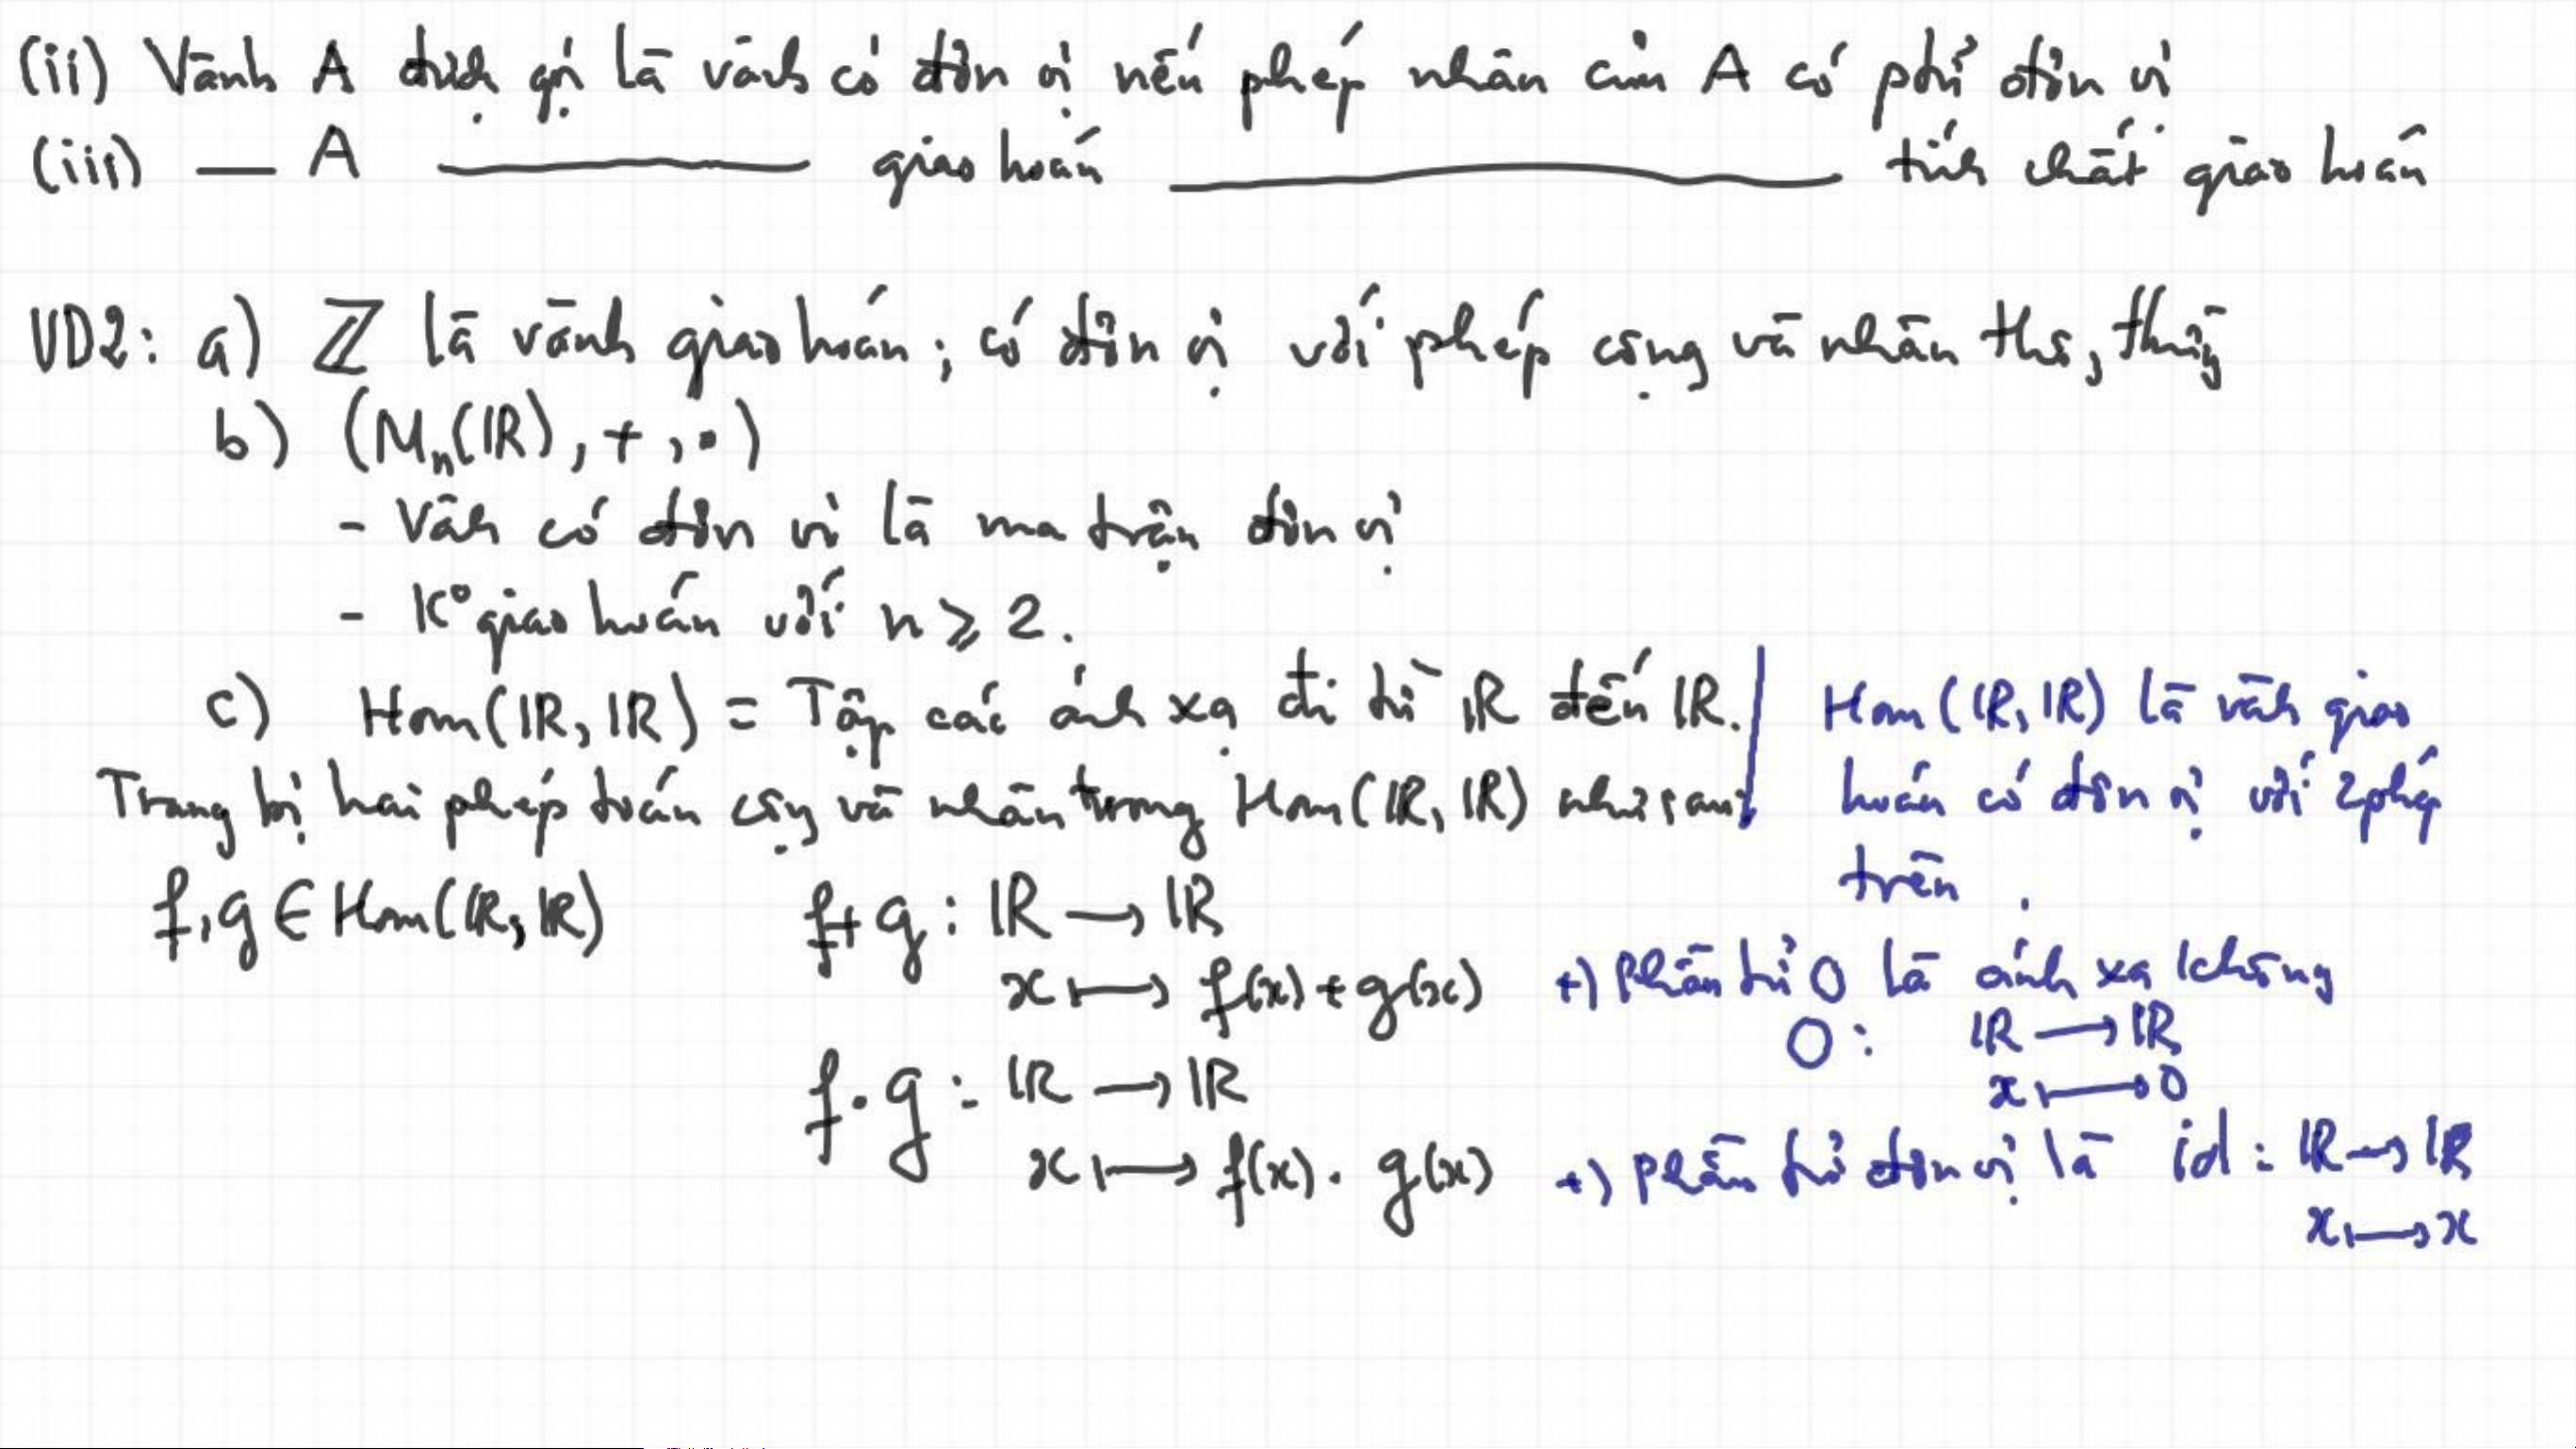 (ii) Vành A được gọi là vành có đơn vị nếu phép nhân của A có ptử đơn vị
(iii) — A ——— giao hoán ——— tính chất giao hoán
VD2: a) ℤ là vành giao hoán; có đơn vị với phép cộng và nhân thông thường
b) (Mₙ(ℝ), +, •)
- Vành có đơn vị là ma trận đơn vị
- K° giao hoán với n ⩾ 2.
c) Hom(ℝ, ℝ) = Tập các ánh xạ đi từ ℝ đến ℝ.
Trang bị hai phép toán cộng và nhân trong Hom(ℝ, ℝ) như sau
f, g ∈ Hom(ℝ, ℝ)
f+g : ℝ → ℝ
x ↦ f(x) + g(x)
f•g : ℝ → ℝ
x ↦ f(x) . g(x)
Hom(ℝ, ℝ) là vành giao
hoán có đơn vị với 2 phép
trên .
+) Phần tử 0 là ánh xạ không
0 : ℝ → ℝ
x ↦ 0
+) Phần tử đơn vị là id : ℝ → ℝ
x ↦ x